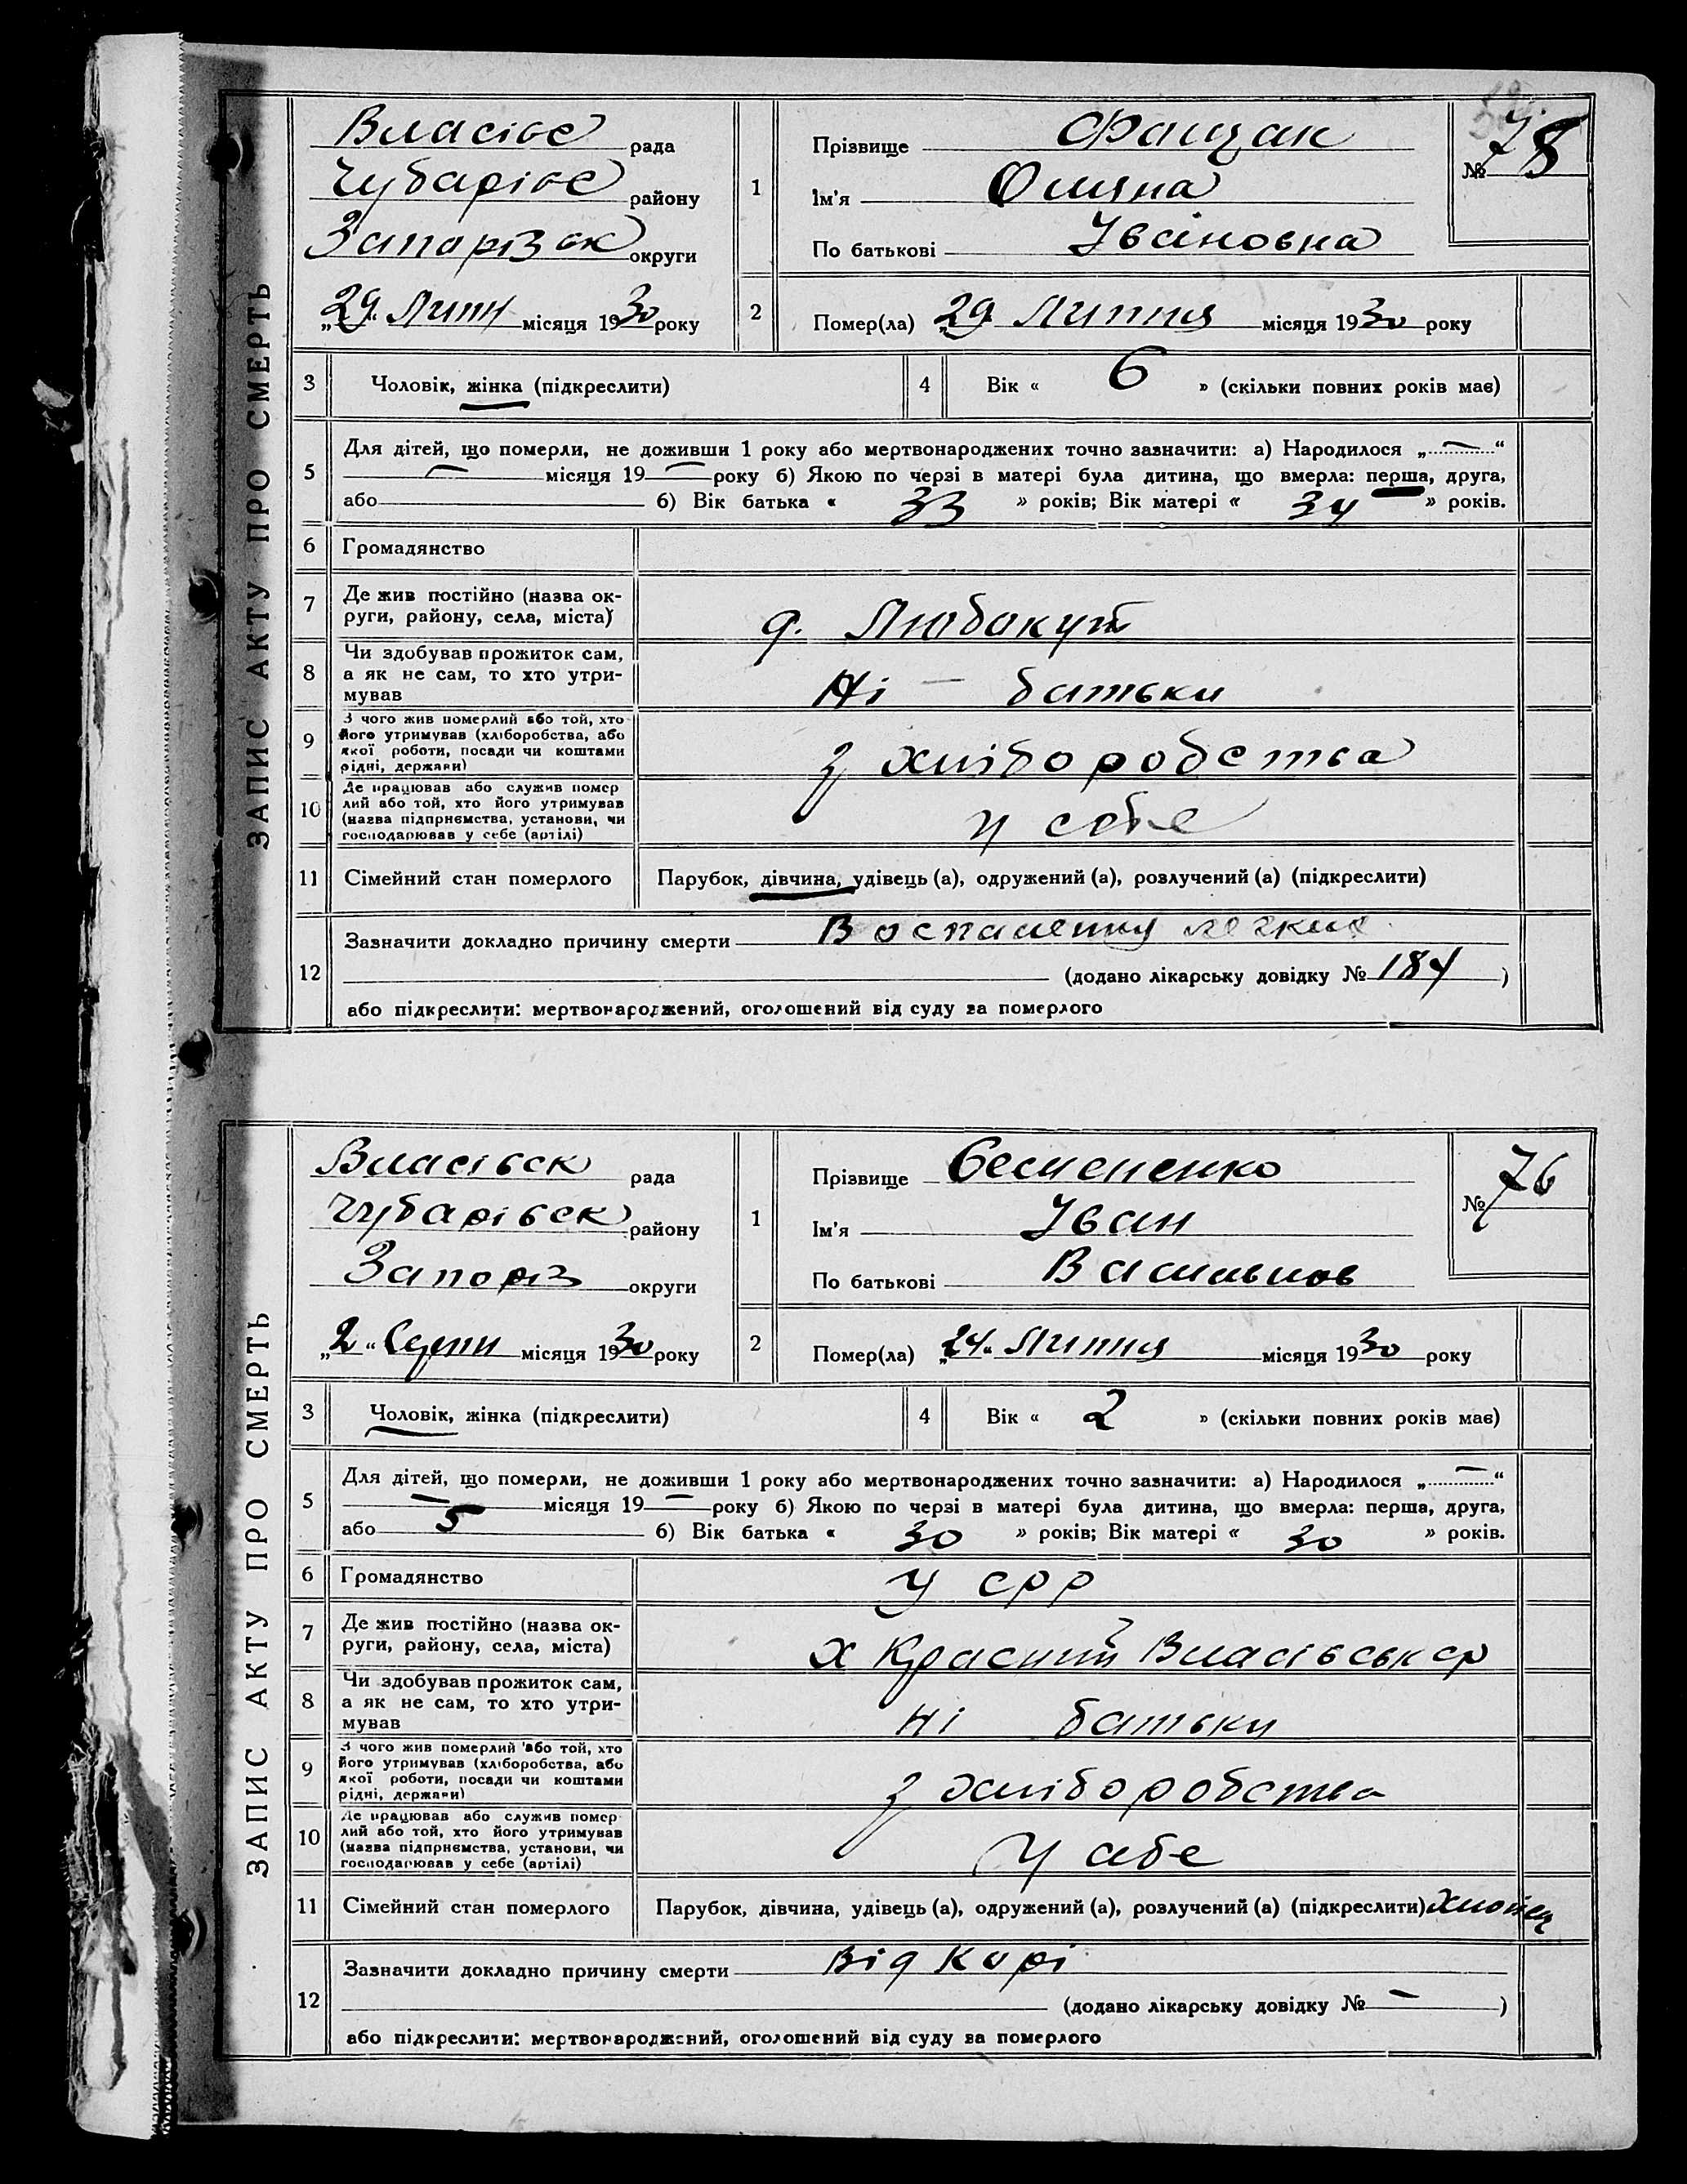 ЗАПИС АКТУ ПРО СМЕРТЬ
Власівс рада
Чубарівс району
Запорізок округи
„29“ Липн місяця 1930 року
1
Прізвище Фащак
Ім'я Оляна
По батькові Івановна
№ 78
2
Помер(ла) „29“ Липня місяця 1930 року
3 Чоловік, жінка (підкреслити)
4 Вік « 6 » (скільки повних років має)
5 Для дітей, що померли, не доживши 1 року або мертвонароджених точно зазначити: а) Народилося „—“
— місяця 19— року б) Якою по черзі в матері була дитина, що вмерла: перша, друга,
або б) Вік батька « 33 » років; Вік матері « 34 » років.
6 Громадянство
7 Де жив постійно (назва ок-
руги, району, села, міста) д. Любакут
8 Чи здобував прожиток сам,
а як не сам, то хто утри-
мував Ні — батьки
9 З чого жив померлий або той, хто
його утримував (хліборобства, або
якої роботи, посади чи коштами
рідні, держави) з хліборобства
10 Де працював або служив помер
лий або той, хто його утримував
(назва підприємства, установи, чи
господарював у себе (артілі) у собе
11 Сімейний стан померлого Парубок, дівчина, удівець (а), одружений (а), розлучений (а) (підкреслити)
12 Зазначити докладно причину смерти Воспаления легких
(додано лікарську довідку № 184)
або підкреслити: мертвонароджений, оголошений від суду за померлого
ЗАПИС АКТУ ПРО СМЕРТЬ
Власівск рада
Чубарівск району
Запоріз округи
„2“ Серпн місяця 1930 року
1
Прізвище
Ім'я Іван
По батькові Васильов
№ 76
2
Помер(ла) „24“ Липня місяця 1930 року
3 Чоловік, жінка (підкреслити)
4 Вік « 2 » (скільки повних років має)
5 Для дітей, що померли, не доживши 1 року або мертвонароджених точно зазначити: а) Народилося „—“
— місяця 19— року б) Якою по черзі в матері була дитина, що вмерла: перша, друга,
або 5 б) Вік батька « 30 » років; Вік матері « 30 » років.
6 Громадянство У срр
7 Де жив постійно (назва ок-
руги, району, села, міста) х Красний Власівськ ср
8 Чи здобував прожиток сам,
а як не сам, то хто утри-
мував Ні батьки
9 З чого жив померлий або той, хто
його утримував (хліборобства, або
якої роботи, посади чи коштами
рідні, держави) з хліборобства
10 Де працював або служив помер
лий або той, хто його утримував
(назва підприємства, установи, чи
господарював у себе (артілі) у себе
11 Сімейний стан померлого Парубок, дівчина, удівець (а), одружений (а), розлучений (а) (підкреслити) хлопец
12 Зазначити докладно причину смерти Від Корі
(додано лікарську довідку № —)
або підкреслити: мертвонароджений, оголошений від суду за померлого